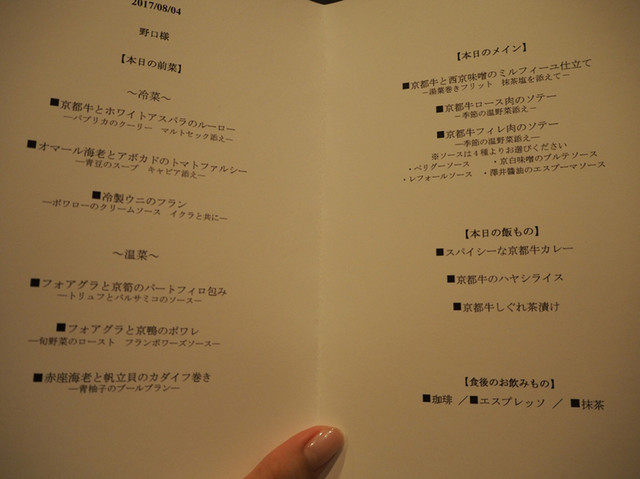 2017/08/04
野口様
【本日の前菜】
〜冷菜〜
■京都牛とホワイトアスパラのルーロー
―パプリカのクーリー マルトセック添え―
■オマール海老とアボカドのトマトファルシー
―青豆のスープ キャビア添え―
■冷製ウニのフラン
―ポワローのクリームソース イクラと共に―
〜温菜〜
■フォアグラと京筍のパートフィロ包み
―トリュフとバルサミコのソース―
■フォアグラと京鴨のポワレ
―旬野菜のロースト フランボワーズソース―
■赤座海老と帆立貝のカダイフ巻き
―青柚子のブールブラン―
【本日のメイン】
■京都牛と西京味噌のミルフィーユ仕立て
―湯葉巻きフリット 抹茶塩を添えて―
■京都牛ロース肉のソテー
―季節の温野菜添え―
■京都牛フィレ肉のソテー
―季節の温野菜添え―
※ソースは4種よりお選びください
・ペリグーソース ・京白味噌のブルテソース
・レフォールソース ・澤井醤油のエスプーマソース
【本日の飯もの】
■スパイシーな京都牛カレー
■京都牛のハヤシライス
■京都牛しぐれ茶漬け
【食後のお飲みもの】
■珈琲 ／■エスプレッソ ／ ■抹茶